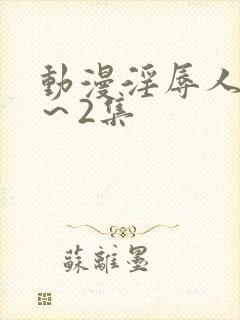 動漫淫辱人
～2集
蘇離墨